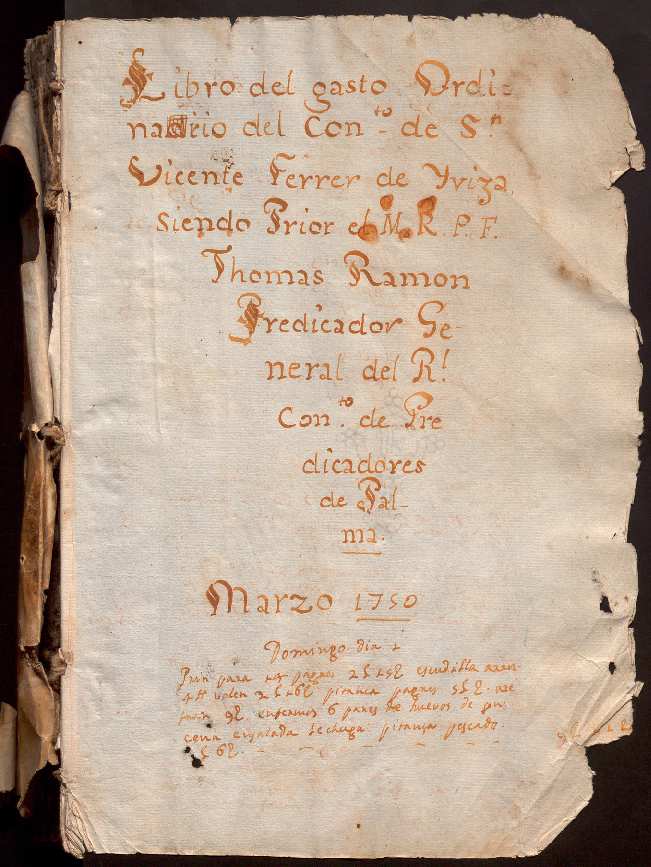 Libro del gasto Ordi=
nario del Con.to de Sn
Vicente Ferrer de Yviza,
siendo Prior el M. R. P. F.
Thomas Ramon
Predicador Ge-
neral del Rl
Con.to de Pre
dicadores
de Pal-
ma.
Marzo 1750
Domingo dia 1
para pagnes escudilla
valen pitança pagnes
6 panes de huevos de
cena ensalada lechuga pitança pescado